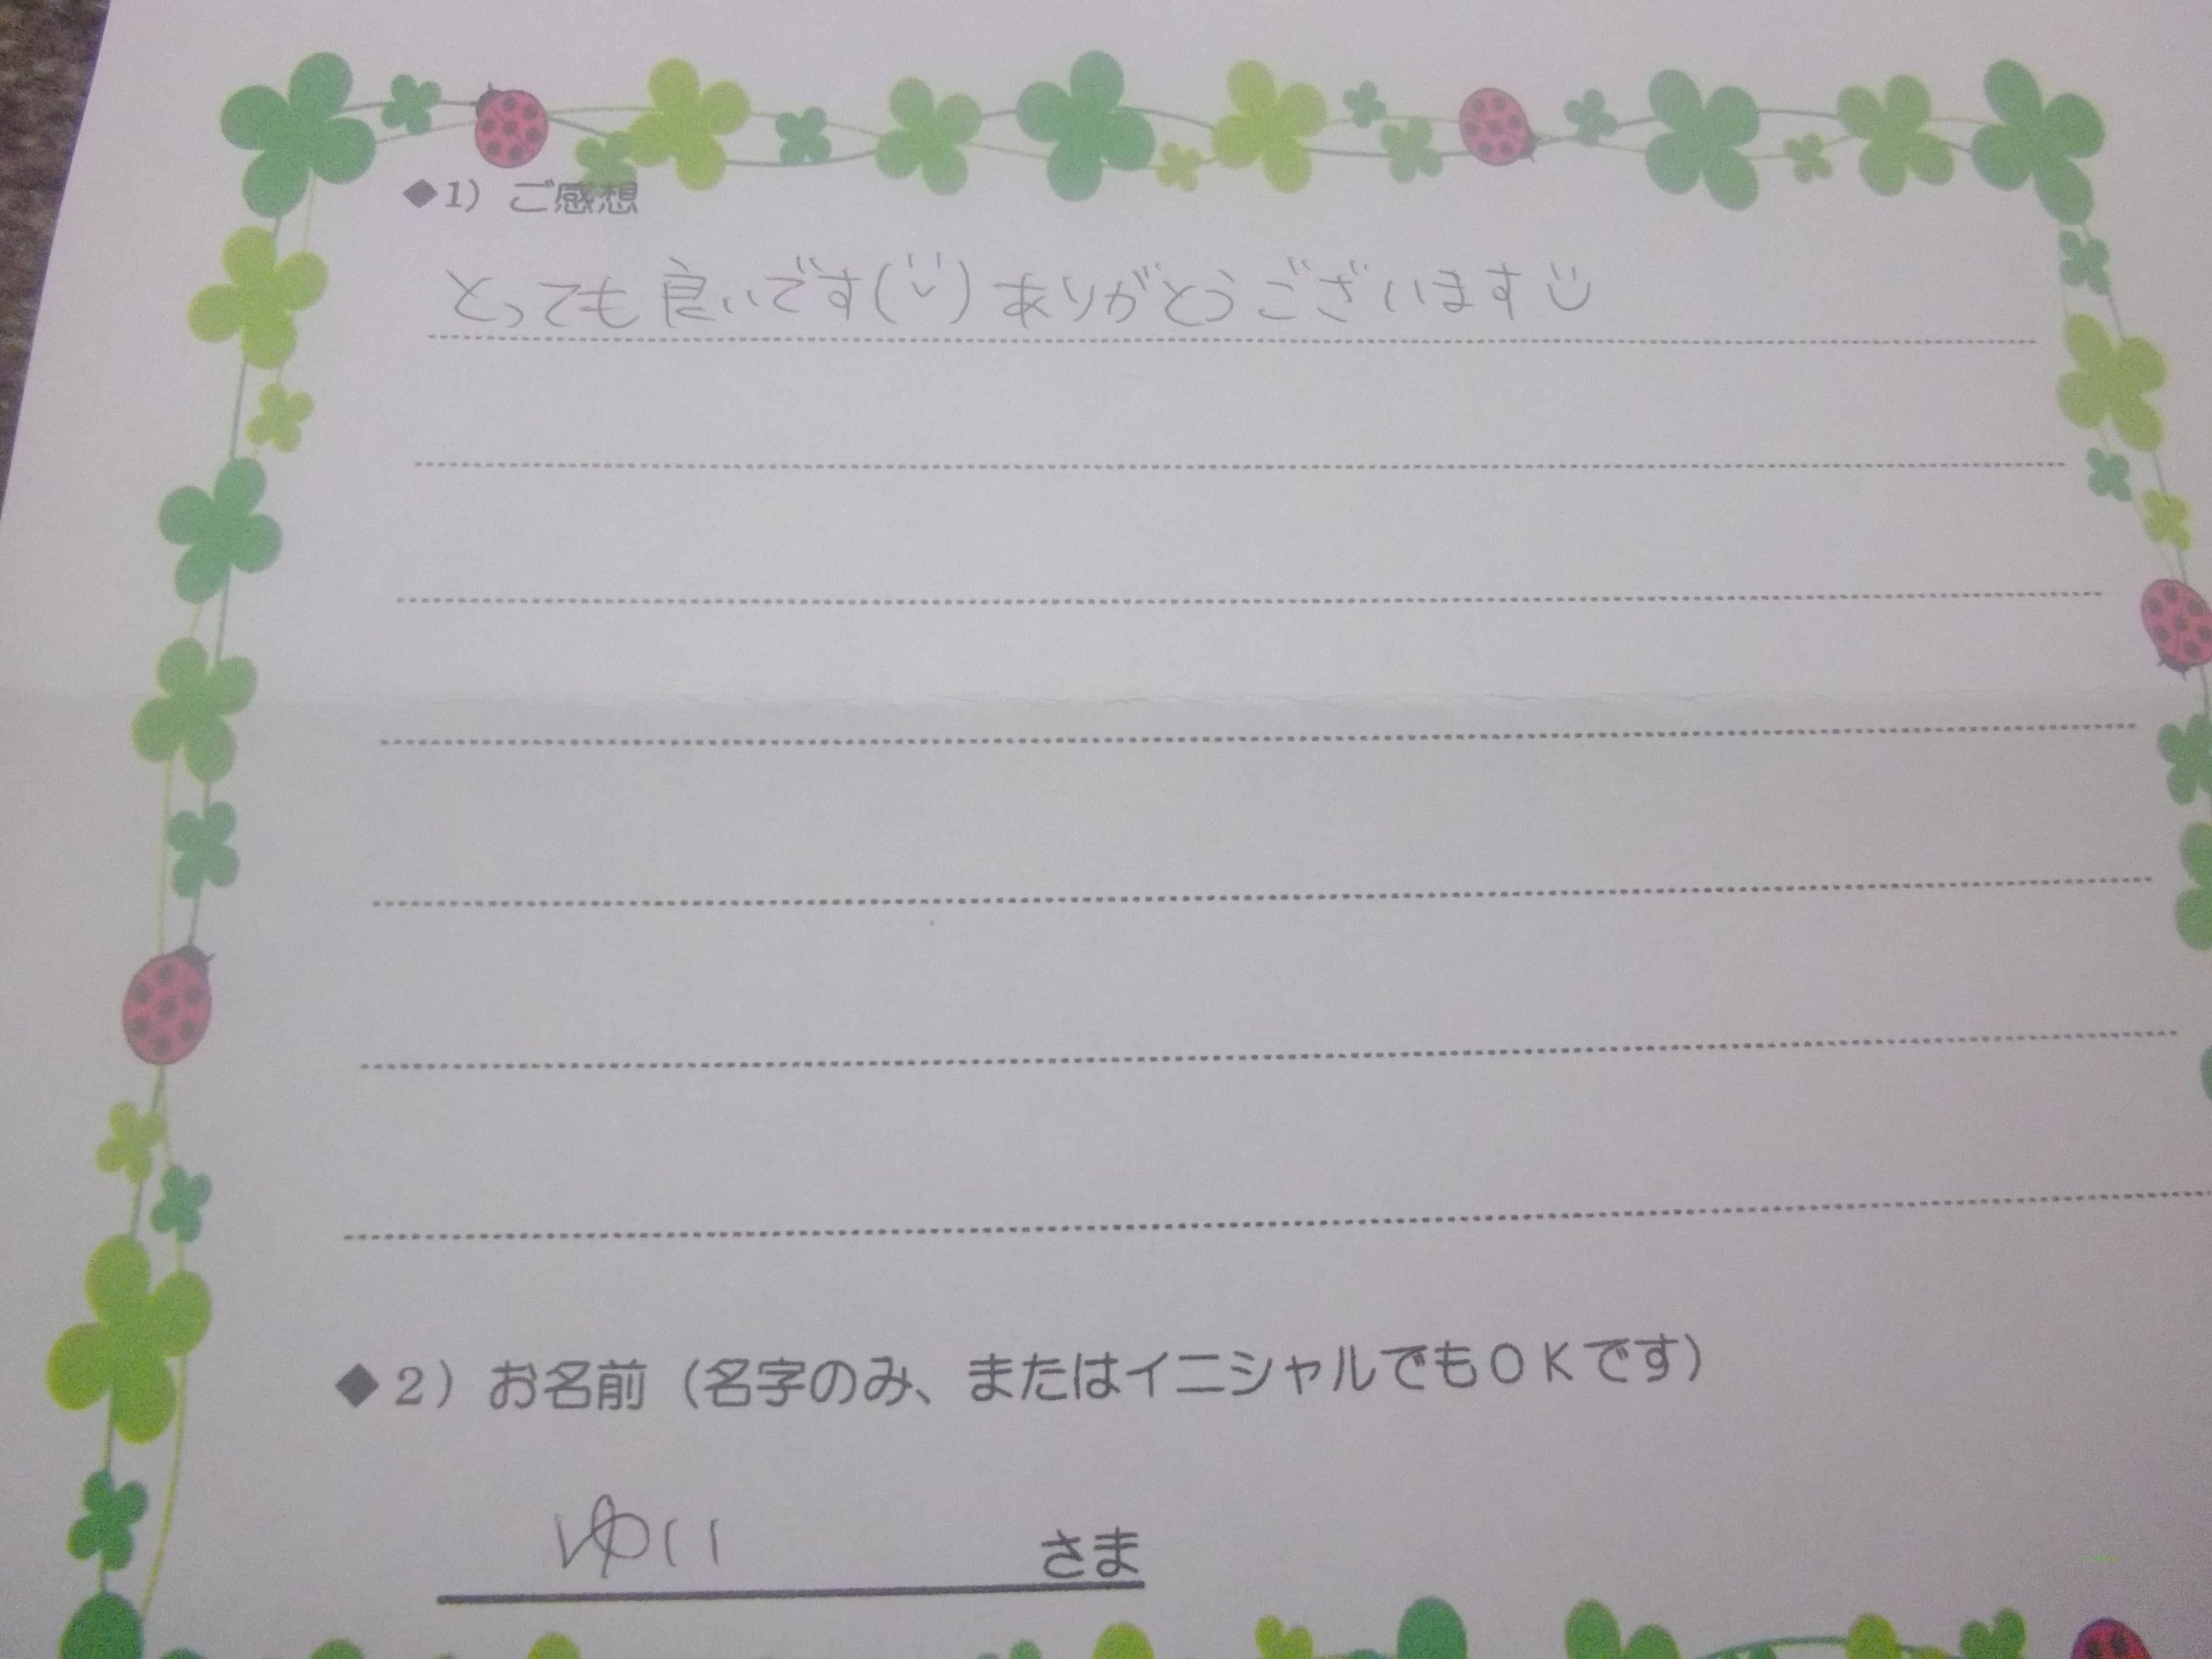 ◆1）ご感想
とっても良いです(ツ)ありがとうございます
◆2）お名前（名字のみ、またはイニシャルでもOKです）
ゆい さま